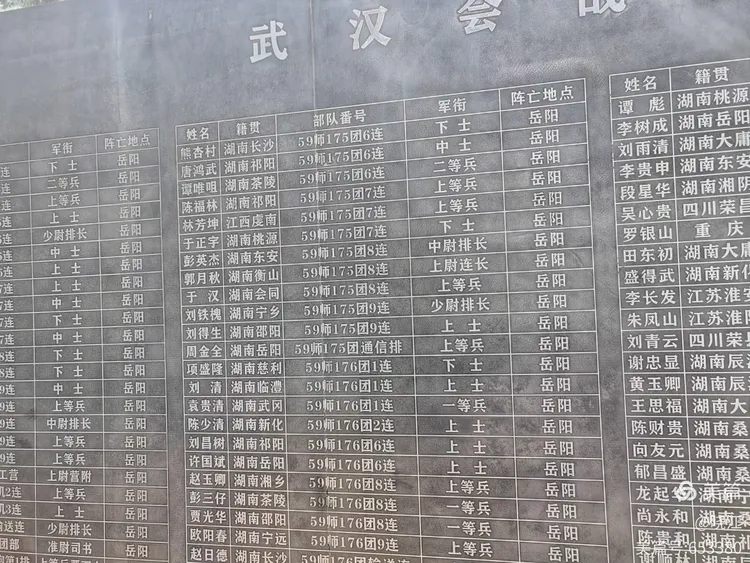 武汉会战
军衔 阵亡地点
连 下士 岳阳
连 二等兵 岳阳
连 上等兵 岳阳
连 上士 岳阳
连 少尉排长 岳阳
连 中士 岳阳
连 上士 岳阳
7连 上士 岳阳
7连 中士 岳阳
7连 下士 岳阳
7连 下士 岳阳
8连 下士 岳阳
8连 下士 岳阳
9连 中士 岳阳
9连 上等兵 岳阳
9连 中尉排长 岳阳
9连 上等兵 岳阳
9连 上等兵 岳阳
工营 上尉营附 岳阳
机2连 上等兵 岳阳
机3连 上士 岳阳
输送连 少尉排长 岳阳
团部 准尉司书 岳阳
第1排 岳阳
姓名 籍贯 部队番号 军衔 阵亡地点
熊杏村 湖南长沙 59师175团6连 下士 岳阳
唐鸿武 湖南祁阳 59师175团6连 中士 岳阳
谭唯咀 湖南茶陵 59师175团6连 二等兵 岳阳
陈福林 湖南祁阳 59师175团7连 上等兵 岳阳
林芳坤 江西虔南 59师175团7连 上等兵 岳阳
于正字 湖南桃源 59师175团7连 下士 岳阳
彭英杰 湖南东安 59师175团8连 中尉排长 岳阳
郭月秋 湖南衡山 59师175团8连 上尉连长 岳阳
于汉 湖南会同 59师175团8连 上等兵 岳阳
刘铁槐 湖南宁乡 59师175团9连 少尉排长 岳阳
刘得生 湖南邵阳 59师175团9连 上士 岳阳
周金全 湖南岳阳 59师175团通信排 上等兵 岳阳
项盛隆 湖南慈利 59师176团1连 下士 岳阳
刘清 湖南临澧 59师176团1连 上士 岳阳
袁贵清 湖南武冈 59师176团1连 一等兵 岳阳
陈少清 湖南新化 59师176团2连 上士 岳阳
刘昌树 湖南祁阳 59师176团6连 上士 岳阳
许国斌 湖南岳阳 59师176团6连 上士 岳阳
赵玉卿 湖南湘乡 59师176团8连 上等兵 岳阳
彭三仔 湖南茶陵 59师176团8连 一等兵 岳阳
贾光华 湖南邵阳 59师176团8连 一等兵 岳阳
欧阳春 湖南宁远 59师176团8连 一等兵 岳阳
赵日德 湖南长沙 59师176团输送连 上等兵 岳阳
姓名 籍贯
谭彪 湖南桃源
李树成 湖南岳阳
刘雨清 湖南大庸
李贵申 湖南东安
段星华 湖南湘阴
吴心贵 四川荣昌
罗银山 重庆
田东初 湖南大庸
盛得武 湖南新化
李长发 江苏淮安
朱凤山 江苏淮阴
刘青云 四川荣县
谢忠显 湖南辰
黄玉卿 湖南辰
王思福 湖南大
陈财贵 湖南桑
向友元 湖南桑
郁昌盛 湖南桑
龙起 湖南
尚永和 湖南
陈贵和 湖南
谢顺林 湖南
美篇号:653380